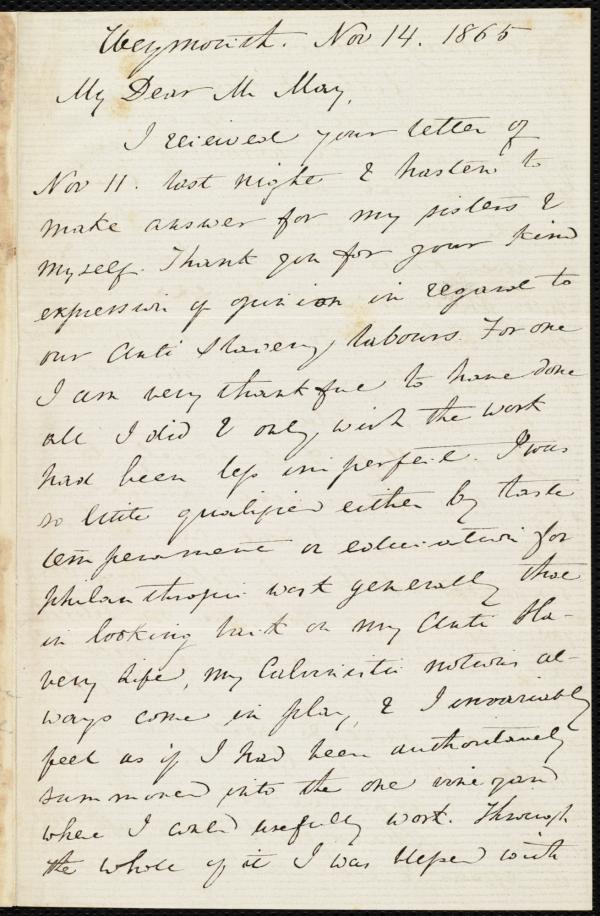 Weymouth. Nov 14. 1865
My Dear Mr May,
I received your letter of
Nov 11. last night & hasten to
make answer for my sisters &
myself. Thank you for your kind
expression of opinion in regard to
our Anti Slavery labours. For one
I am very thankful to have done
all I did & only wish the work
had been less imperfect. I was
so little qualified either by taste
temperament or education for
philanthropic work generally that
in looking back on my Anti Sla-
very life, my Calvinistic notions al-
ways come in play, & I invariably
feel as if I had been authoritatively
summoned into the one vineyard
where I could usefully work. Through
the whole of it I was blessed with